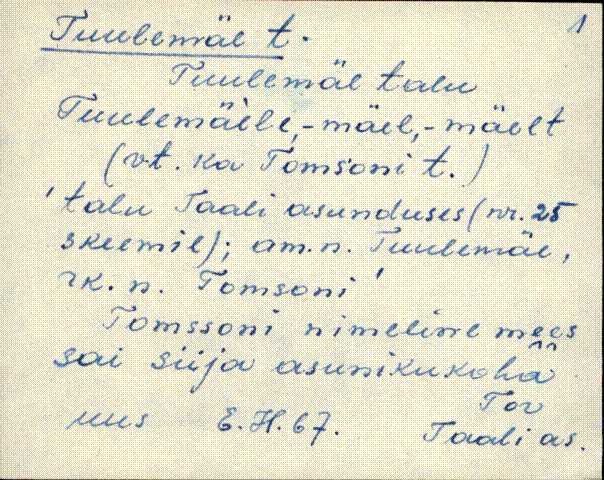 1
Tuulemäe t.
Tuulemäe talu
Tuulemäèle, -mäel, -mäelt
(vt. ka Tomsoni t.)
'talu Taali asunduses (nr. 25
skeemil); am.n. Tuulemäe,
rk. n. Tomsoni'
Tomssoni nimeline mees
sai siija asunikukoha
Tor
uus E.H.67. Taali as.